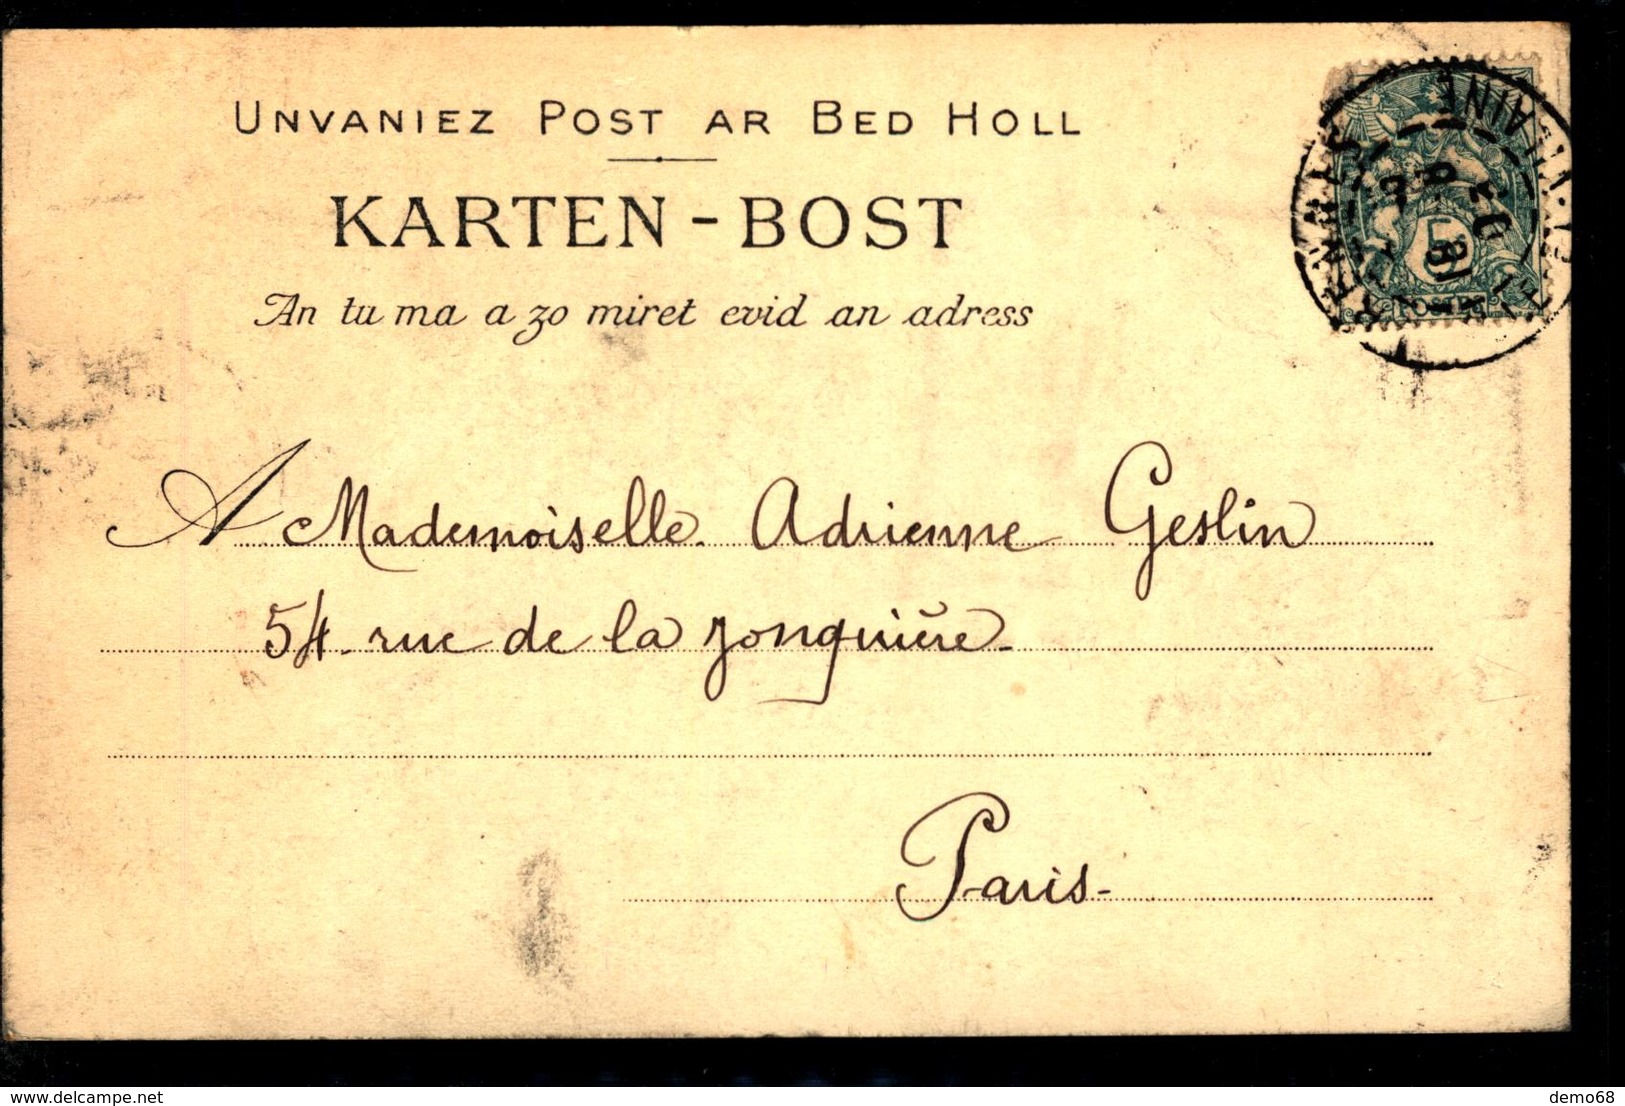 UNVANIEZ POST AR BED HOLL
KARTEN-BOST
An tu ma a zo miret evid an adress
A Mademoiselle. Adrienne Geslin
54. rue de la Jonquière
Paris-
RENNES
ILLE-ET-VILAINE
5
delcampe.net
demo68